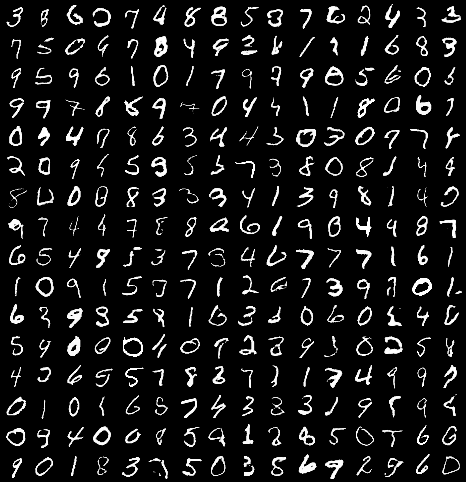 3 8 6 0 7 9 8 8 5 8 7 6 2 4 3 3
7 5 0 9 7 8 4 9 2 6 1 1 1 6 8 3
9 5 9 6 1 0 1 7 9 7 9 8 5 6 0 3
9 9 7 8 8 9 7 0 4 4 1 1 8 0 6 1
0 9 4 7 8 6 3 4 4 3 0 3 0 7 7 8
2 0 9 5 9 5 5 7 3 8 0 8 1 4 9
8 0 0 8 8 3 3 3 4 1 3 9 8 1 4 0
9 7 4 4 7 8 8 2 6 1 9 8 4 9 8 7
6 5 4 8 5 3 7 3 4 6 7 7 7 1 6 1
1 0 9 1 5 7 7 1 2 6 7 3 9 7 0 1
6 3 9 9 5 8 1 6 3 0 6 0 4 8
5 9 0 0 0 4 0 9 2 3 9 3 0 2 5 8
4 2 6 5 5 7 8 3 7 1 1 7 4 9 9 7
0 1 0 6 8 7 4 3 8 3 1 9 5 9 4
0 9 4 0 0 8 5 9 1 2 8 5 0 7 6 6
9 0 1 8 3 5 0 3 8 6 9 2 5 6 0